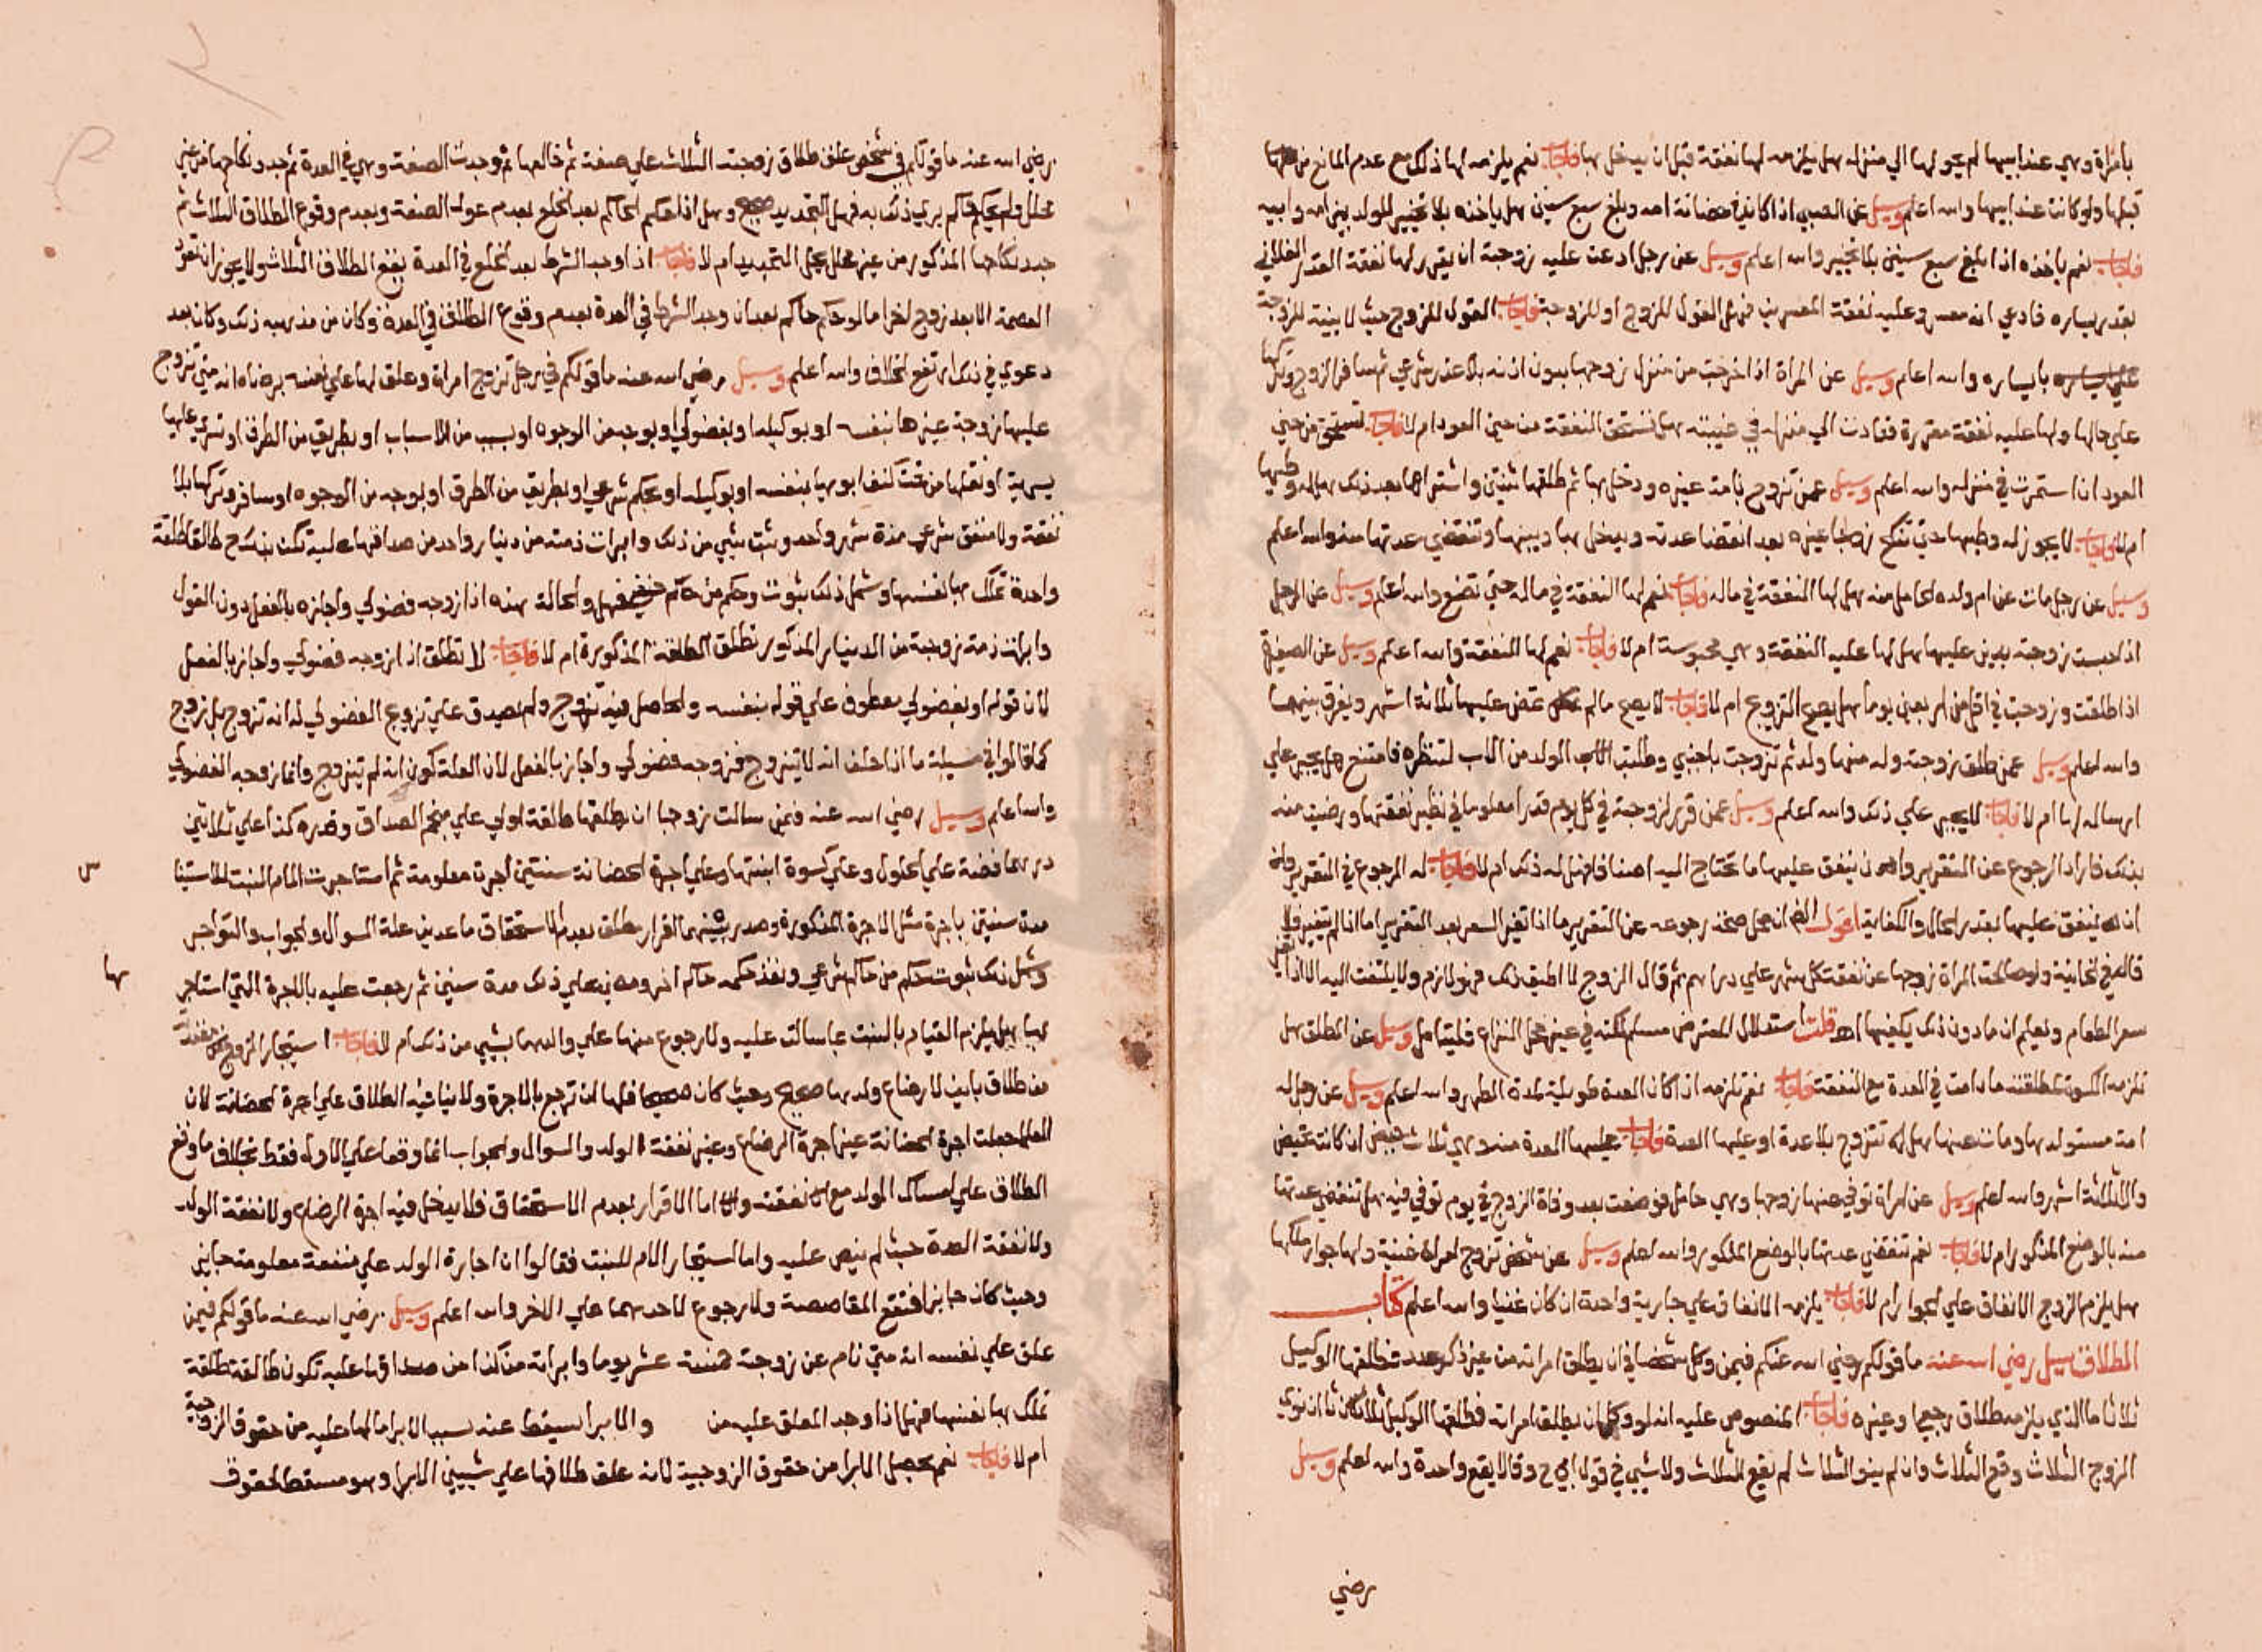 بامراة وهي عند ابيها لم يحولها الي منزله هل يلزمه لها نفقة قبل ان يدخل بها فاجاب نعم يلزمه لها ذلك مع عدم المانع من
قبلها ولو كانت عند ابيها والله اعلم وسيل عن الصبي اذا كان في حضانة امه وبلغ سبع سنين هل ياخذه بلا تخيير للولد بين امه وابيه
فاجاب نعم ياخذه اذا بلغ سبع سنين بلا تخيير والله اعلم وسيل عن رجل ادعت عليه زوجته ان يقرر لها نفقة القدر الفلاني
بقدر يساره فادعي انه معسر وعليه نفقة المعسرين فهل القول للزوج او للزوجة فاجاب القول للزوج حيث لا بينة للزوجة
بايساره والله اعلم وسيل عن المراة اذا خرجت من منزل زوجها بدون اذنه بلا عذر شرعي ثم سافر الزوج وتركها
علي حالها ولها عليه نفقة مقررة فعادت الي منزله في غيبته هل تستحق النفقة من حين العود ام لا فاجاب تستحق من حين
العود ان استمرت في منزله والله اعلم وسيل عمن تزوج بامة غيره ودخل بها ثم طلقها ثنتين واشتراها بعد ذلك هل له وطيها
ام لا فاجاب لا يجوز له وطيها حتي تنكح زوجا غيره بعد انقضا عدته ويدخل بها ويبينها وتنقضي عدتها منه والله اعلم
وسيل عن رجل مات عن ام ولده الحامل منه هل لها النفقة في ماله فاجاب نعم لها النفقة في ماله حتي تضع والله اعلم وسيل عن الرجل
اذا حبست زوجته بدين عليها هل لها عليه النفقة وهي محبوسة ام لا فاجاب نعم لها النفقة والله اعلم وسيل عن الصغيرة
اذا طلقت وزوجت في اقل من اربعين يوما هل يصح التزويج ام لا فاجاب لا يصح مالم تمض عليها ثلاثة اشهر ويفرق بينهما
والله اعلم وسيل عمن طلق زوجته وله منها ولد ثم تزوجت باجنبي وطلبت الولد من الاب لتنظره فامتنع هل يجبر علي
ارساله لها ام لا فاجاب لا يجبر علي ذلك والله اعلم وسيل عمن قرر لزوجته في كل يوم قدرا معلوما في نظير نفقتها ورضيت منه
بذلك فاراد الرجوع عن التقرير وان ينفق عليها ما تحتاج اليه اصنافا فهل له ذلك ام لا فاجاب له الرجوع في التقرير وله
ان ينفق عليها بقدر الحال والكفاية اقول الظ ان محل صحة رجوعه عن التقرير ما اذا تغير السعر بعد التقرير اما اذا لم يتغير فلا
قال في الخانية ولو صالحت المراة زوجها عن نفقة كل شهر علي دراهم ثم قال الزوج لا اطيق ذلك فهو لازم ولا يلتفت اليه الا اذا تغير
سعر الطعام ويعلم ان ما دون ذلك يكفيها اهـ قلت استدلال المعترض مسلم لكنه في غير محل النزاع فليتامل وسيل عن المطلق هل
تلزمه الكسوة لمطلقته ما دامت في العدة مع النفقة فاجاب نعم تلزمه اذا كان العدة طويلة لمدة الطهر والله اعلم وسيل عن رجل له
امة مستولدها ومات عنها هل له تتزوج بلا عدة او عليها العدة فاجاب عليها العدة منه وهي ثلاث حيض ان كانت تحيض
والا ثلاثة اشهر والله اعلم وسيل عن امراة توفي عنها زوجها وهي حامل فوضعت بعد وفاة الزوج في يوم توفي فيه هل تنقضي عدتها
منه بالوضع المذكور ام لا فاجاب نعم تنقضي عدتها بالوضع المذكور والله اعلم وسيل عن شخص تزوج امراة غنية ولها جوار ملكها
هل يلزم الزوج الانفاق علي الجوار ام لا فاجاب يلزمه الانفاق علي جارية واحدة ان كان غنيا والله اعلم كتاب
الطلاق سيل رضي الله عنه ما قولكم رضي الله عنكم فيمن وكل شخصا في ان يطلق امراته من غير ذكر عدد فطلقها الوكيل
ثلاثا ما الذي يلزمه طلاق رجعي او غيره فاجاب المنصوص عليه انه لو وكله ان يطلق امراته فطلقها الوكيل ثلاثا ان نوي
الزوج الثلاث وقع الثلاث وان لم ينو الثلاث لم يقع الثلاث ولا شيي في قول ابي ح وقالا يقع واحدة والله اعلم وسيل
رضي
رضي الله عنه ما قولكم في شخص علق طلاق زوجته الثلاث علي صفة ثم خالعها ثم وجدت الصفة وهي في العدة ثم جدد نكاحها من غير
محلل ولم يحكم حاكم يري ذلك به فهل التجديد صحيح وهل اذا حكم الحاكم بعد الخلع بعدم عود الصفة وبعدم وقوع الطلاق الثلاث ثم
جدد نكاحها المذكور من غير محلل يحل التجديد ام لا فاجاب اذا وجد الشرط بعد الخلع في العدة يقع الطلاق الثلاث ولا يجوز ان تعود
العصمة الا بعد زوج اخر اما لو حكم حاكم بعد ان وجد الشرط في العدة بعدم وقوع الطلاق في العدة وكان من مذهبه ذلك وكان بعد
دعوي في ذلك ارتفع الخلاف والله اعلم وسيل رضي الله عنه ما قولكم في رجل تزوج امراة وعلق لها علي نفسه برضاه انه متي تزوج
عليها زوجة غيرها بنفسه او بوكيله او بفضولي او بوجه من الوجوه او بسبب من الاسباب او بطريق من الطرق او تسري عليها
بسرية او نقلها من تحت كنف ابويها بنفسه او بوكيله او بحكم شرعي او بطريق من الطرق او بوجه من الوجوه او سافر وتركها بلا
نفقة ولا منفق شرعي مدة شهر واحد وثبت شيي من ذلك وابرات ذمته من دينار واحد من صداقها عليه تكن طالقا طلقة
واحدة تملك بها نفسها وشمل ذلك ثبوت وحكم من حاكم حنفي فهل والحالة هذه اذا زوجه فضولي واجازه بالفعل دون القول
وابرات ذمة زوجته من الدينار المذكور تطلق الطلقة المذكورة ام لا فاجاب لا تطلق اذا زوجه فضولي واجاز بالفعل
لان قوله او بفضولي معطوف علي قوله بنفسه والحاصل فيه تزوج ولم يصدق علي تزويج الفضولي له انه تزوج بل زوج
كما قالوا في مسيلة ما اذا حلف انه لا يتزوج فزوجه فضولي واجاز بالفعل لان العلة كون انه لم يتزوج وانما زوجه الفضولي
والله اعلم وسيل رضي الله عنه فيمن سالت زوجها ان يطلقها طلقة اولي علي منجم الصداق وقدره كذا علي ثلاثين
درهما فضة علي الحلول وعلي كسوة ابنتها وعلي اجرة الحضانة سنتين اجرة معلومة ثم استاجرت الام البنت للاستينا
مدة سنتين باجرة مثل الاجرة المذكورة وصدر بينهما اقرار مطلق بعدم الاستحقاق ما عدي علة السوال والجواب والتواجر
وشمل ذلك ثبوت حكم من حاكم شرعي ونفذ حكمه حاكم اخر ومضي علي ذلك مدة سنين ثم رجعت عليه بالاجرة التي استاجر
بها هل يلزم القيام بالبنت بما سالت عليه ولا رجوع منها علي والدها بشيي من ذلك ام لا فاجاب استيجار الزوج
من طلاق باين لارضاع ولدها صحيح وحيث كان صحيحا فلها ان ترجع بالاجرة ولا ينافيه الطلاق علي اجرة الحضانة لان
العلما جعلت اجرة الحضانة غير اجرة الرضاع وغير نفقة الولد والسوال والجواب انما وقعا علي الاول فقط بخلاف ما وقع
الطلاق علي امساك الولد مع نفقته واما الاقرار بعدم الاستحقاق فلا يدخل فيه اجرة الرضاع ولا نفقة الولد
ولا نفقة العدة حيث لم ينص عليه واما استيجار الام للبنت فقالوا ان اجارة الولد علي منفعة معلومة جايز
وحيث كان جايزا فتقع المقاصصة ولا رجوع لاحدهما علي الاخر والله اعلم وسيل رضي الله عنه ما قولكم فيمن
علق علي نفسه انه متي نام عن زوجته خمسة عشر يوما وابراته من كذا من صداقها عليه تكون طالقة طلقة
تملك بها نفسها فهل اذا وجد المعلق عليه من والابرا يسقط عنه بسبب الابرا مالها عليه من حقوق الزوجية
ام لا فاجاب نعم يحصل الابرا من حقوق الزوجية لانه علق طلاقها علي شييين الابرا وهو مسقط لحقوق